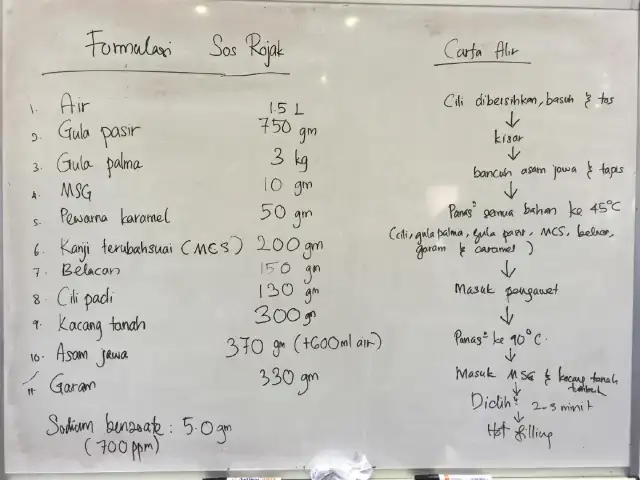 Formulasi Sos Rojak
1. Air 1.5 L
2. Gula pasir 750 gm
3. Gula palma 3 kg
4. MSG 10 gm
5. Pewarna karamel 50 gm
6. Kanji terubahsuai (MCS) 200 gm
7. Belacan 150 gm
8. Cili padi 130 gm
9. Kacang tanah 300 gm
10. Asam jawa 370 gm (+600ml air)
11. Garam 330 gm
Sodium benzoate : 5.0 gm
(700 ppm)
Carta Alir
Cili dibersihkan, basuh & tos
↓
kisar
↓
bancuh asam jawa & tapis
↓
Panas² semua bahan ke 45°C
(cili, gula palma, gula pasir, MCS, belacan,
garam & caramel)
↓
Masuk pengawet
↓
Panas² ke 90°C.
↓
Masuk MSG & kacang tanah
tumbuk
↓
Didih² 2-3 minit
↓
Hot filling